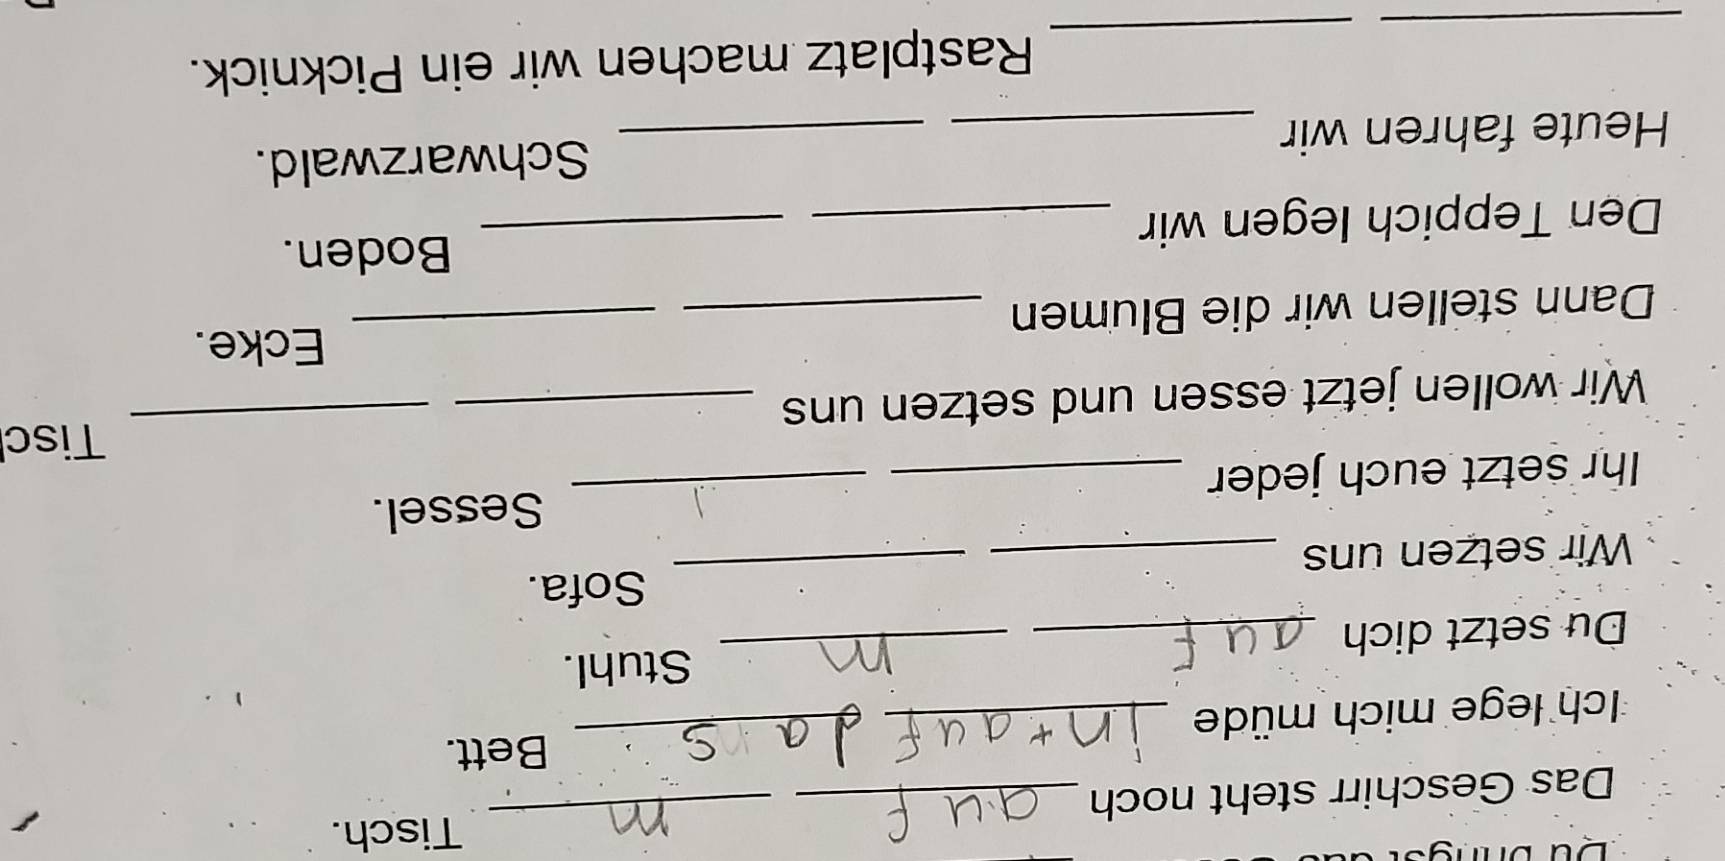 Du bringst das
Das Geschirr steht noch auf m Tisch.
Ich lege mich müde in+auf das Bett.
Du setzt dich auf m Stuhl.
Wir setzen uns Sofa.
Ihr setzt euch jeder Sessel.
Wir wollen jetzt essen und setzen uns
Dann stellen wir die Blumen Ecke.
Den Teppich legen wir Boden.
Heute fahren wir Schwarzwald.
Rastplatz machen wir ein Picknick.